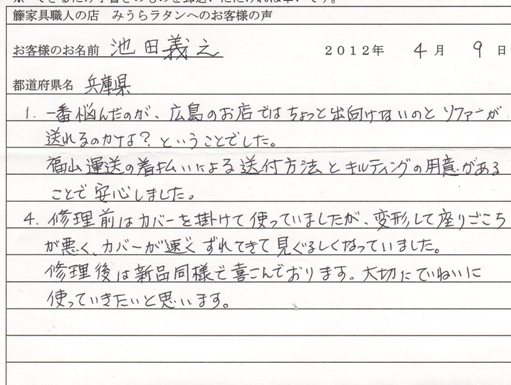 籐家具職人の店 みうらラタンへのお客様の声
お客様のお名前 池田義之 2012年 4月 9日
都道府県名 兵庫県
1. 一番悩んだのが、広島のお店ではちょっと出向けないのと ソファーが
送れるのかな?ということでした。
福山運送の着払いによる送付方法とキルティングの用意がある
ことで安心しました。
4. 修理前はカバーを掛けて使っていましたが、変形して座りごこち
が悪く、カバーが速くずれてきて見ぐるしくなっていました。
修理後は新品同様で喜こんでおります。大切にていねいに
使っていきたいと思います。